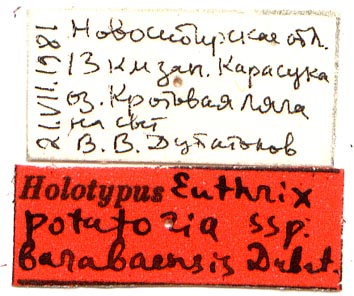 Новосибирская обл.
13 км зап. Карасука
оз. Кротовая Ляга
на свет
В. В. Дубатолов
21.VII.1981
Holotypus Euthrix
potatoria ssp.
barabaensis Dubat.